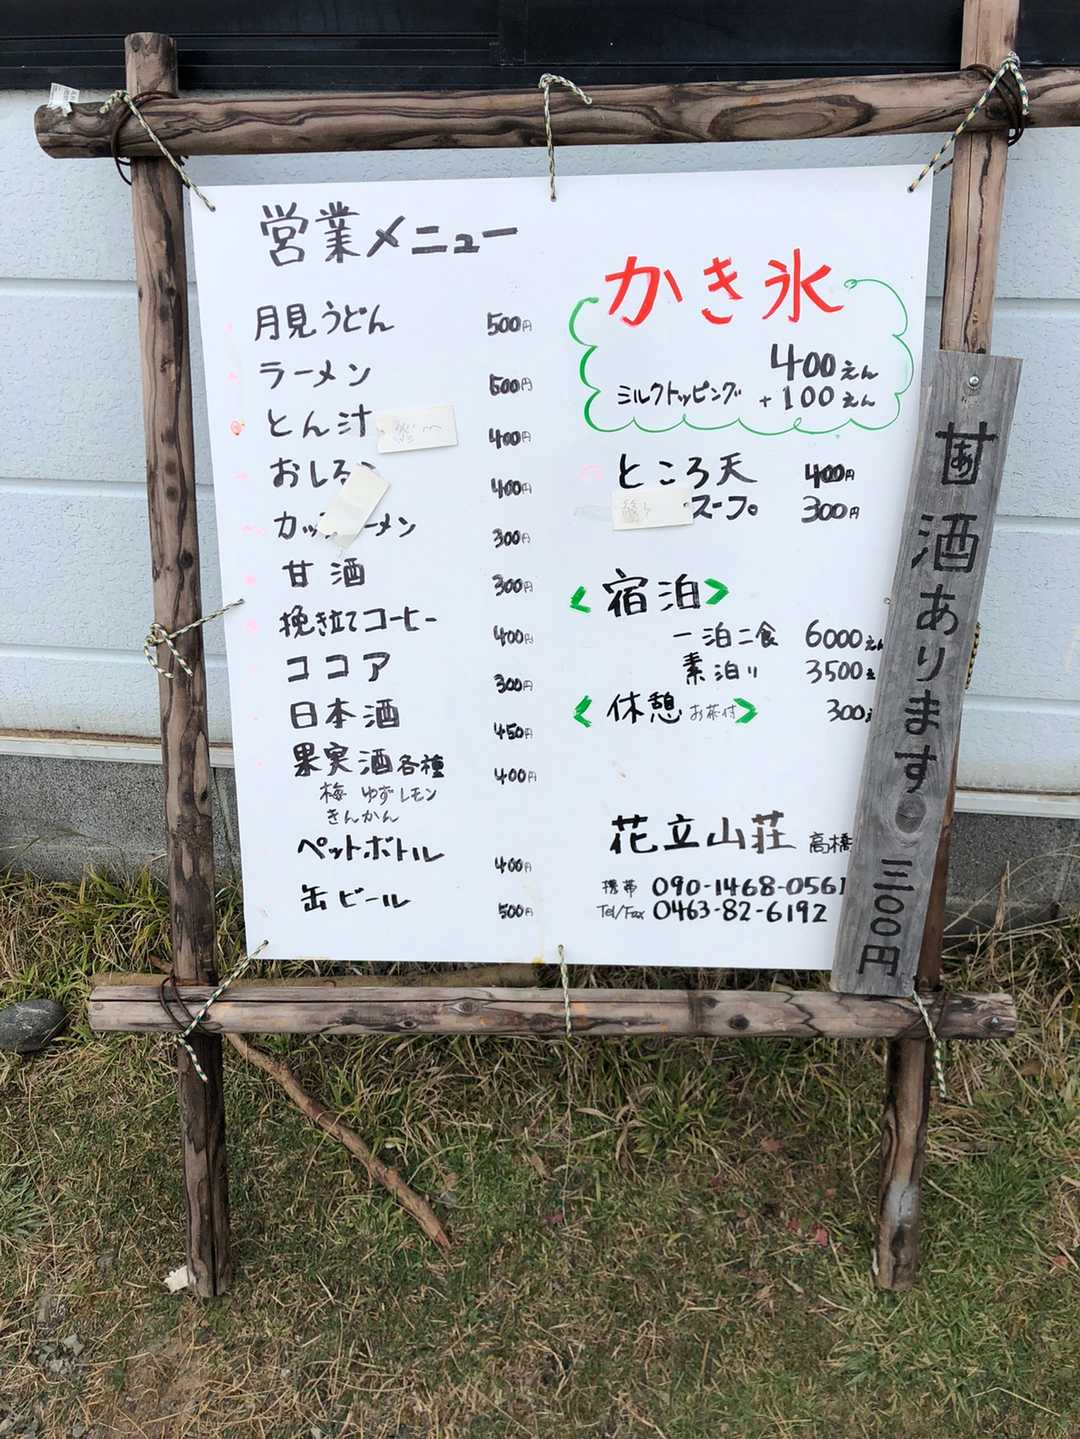 営業メニュー
月見うどん 500円
ラーメン 500円
とん汁 400円
おしるこ 400円
カップラーメン 300円
甘酒 300円
挽き立てコーヒー 400円
ココア 300円
日本酒 450円
果実酒各種 400円
梅 ゆず レモン
きんかん
ペットボトル 400円
缶ビール 500円
かき氷
400えん
ミルクトッピング +100えん
ところ天 400円
スープ 300円
宿泊
一泊二食 6000えん
素泊り 3500え
休憩 お茶付 300え
花立山荘 高橋
携帯 090-1468-0561
Tel/Fax 0463-82-6192
甘酒あります 三〇〇円